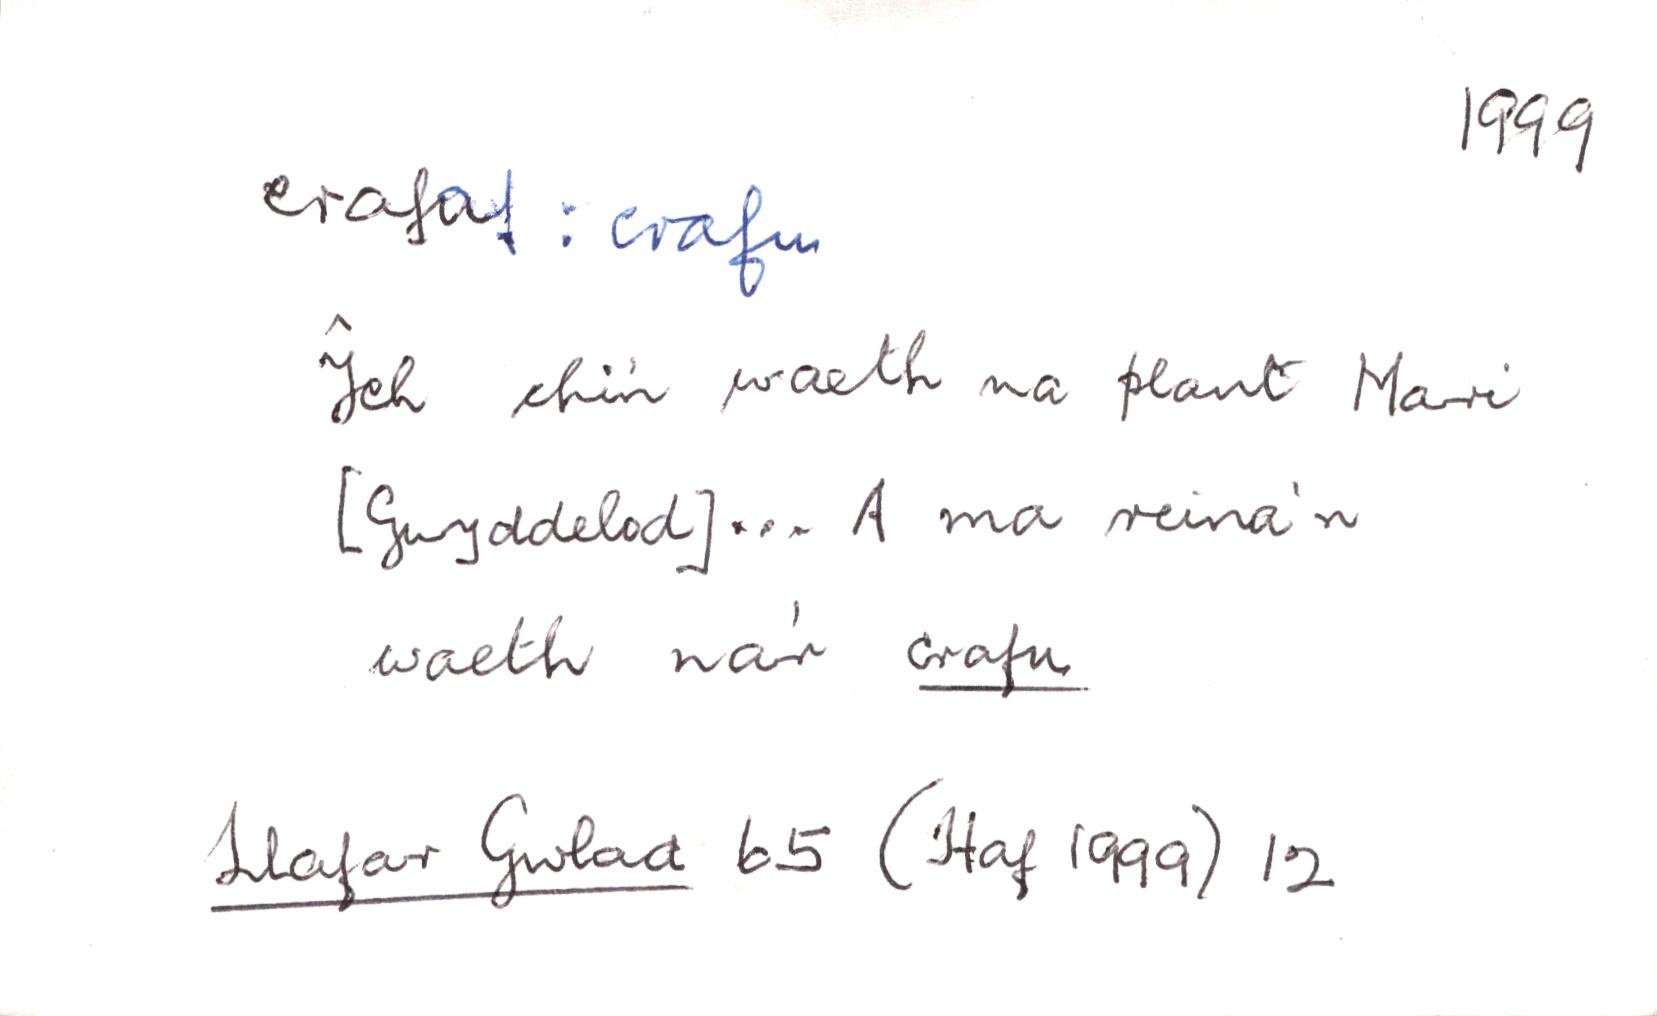 1999
crafaf : crafu
Ŷch chi'n waeth na plant Mari
[Gwyddelod]... A ma reina'n
waeth na'r crafu
Llafar Gwlad 65 (Haf 1999) 12